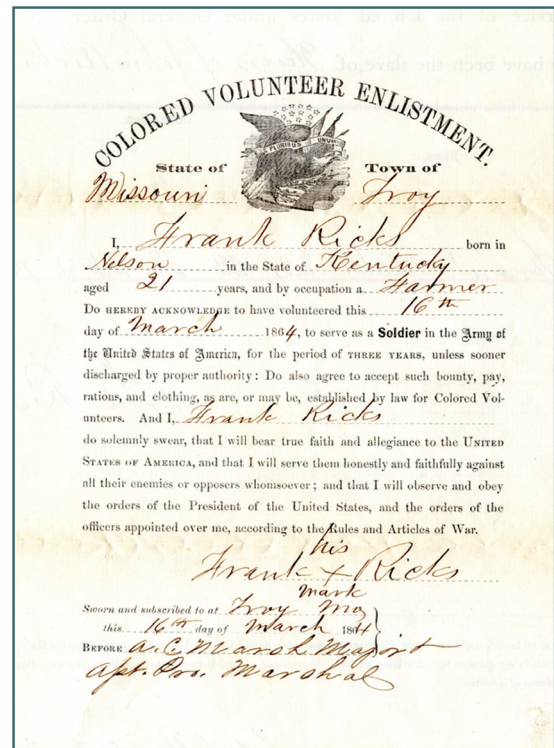 COLORED VOLUNTEER ENLISTMENT.
E PLURIBUS UNUM
State of Town of
Missouri Troy
I, Frank Ricks born in
Nelson in the State of Kentucky
aged 21 years, and by occupation a Farmer
Do HEREBY ACKNOWLEDGE to have volunteered this 16th
day of March 1864, to serve as a Soldier in the Army of
the United States of America, for the period of THREE YEARS, unless sooner
discharged by proper authority: Do also agree to accept such bounty, pay,
rations, and clothing, as are, or may be, established by law for Colored Vol-
unteers. And I, Frank Ricks
do solemnly swear, that I will bear true faith and allegiance to the UNITED
STATES OF AMERICA, and that I will serve them honestly and faithfully against
all their enemies or opposers whomsoever; and that I will observe and obey
the orders of the President of the United States, and the orders of the
officers appointed over me, according to the Rules and Articles of War.
his
Frank X Ricks
mark
Sworn and subscribed to at Troy Mo
this 16th day of March 1864
BEFORE A. C. Marsh Major &
Asst. Pro. Marshal